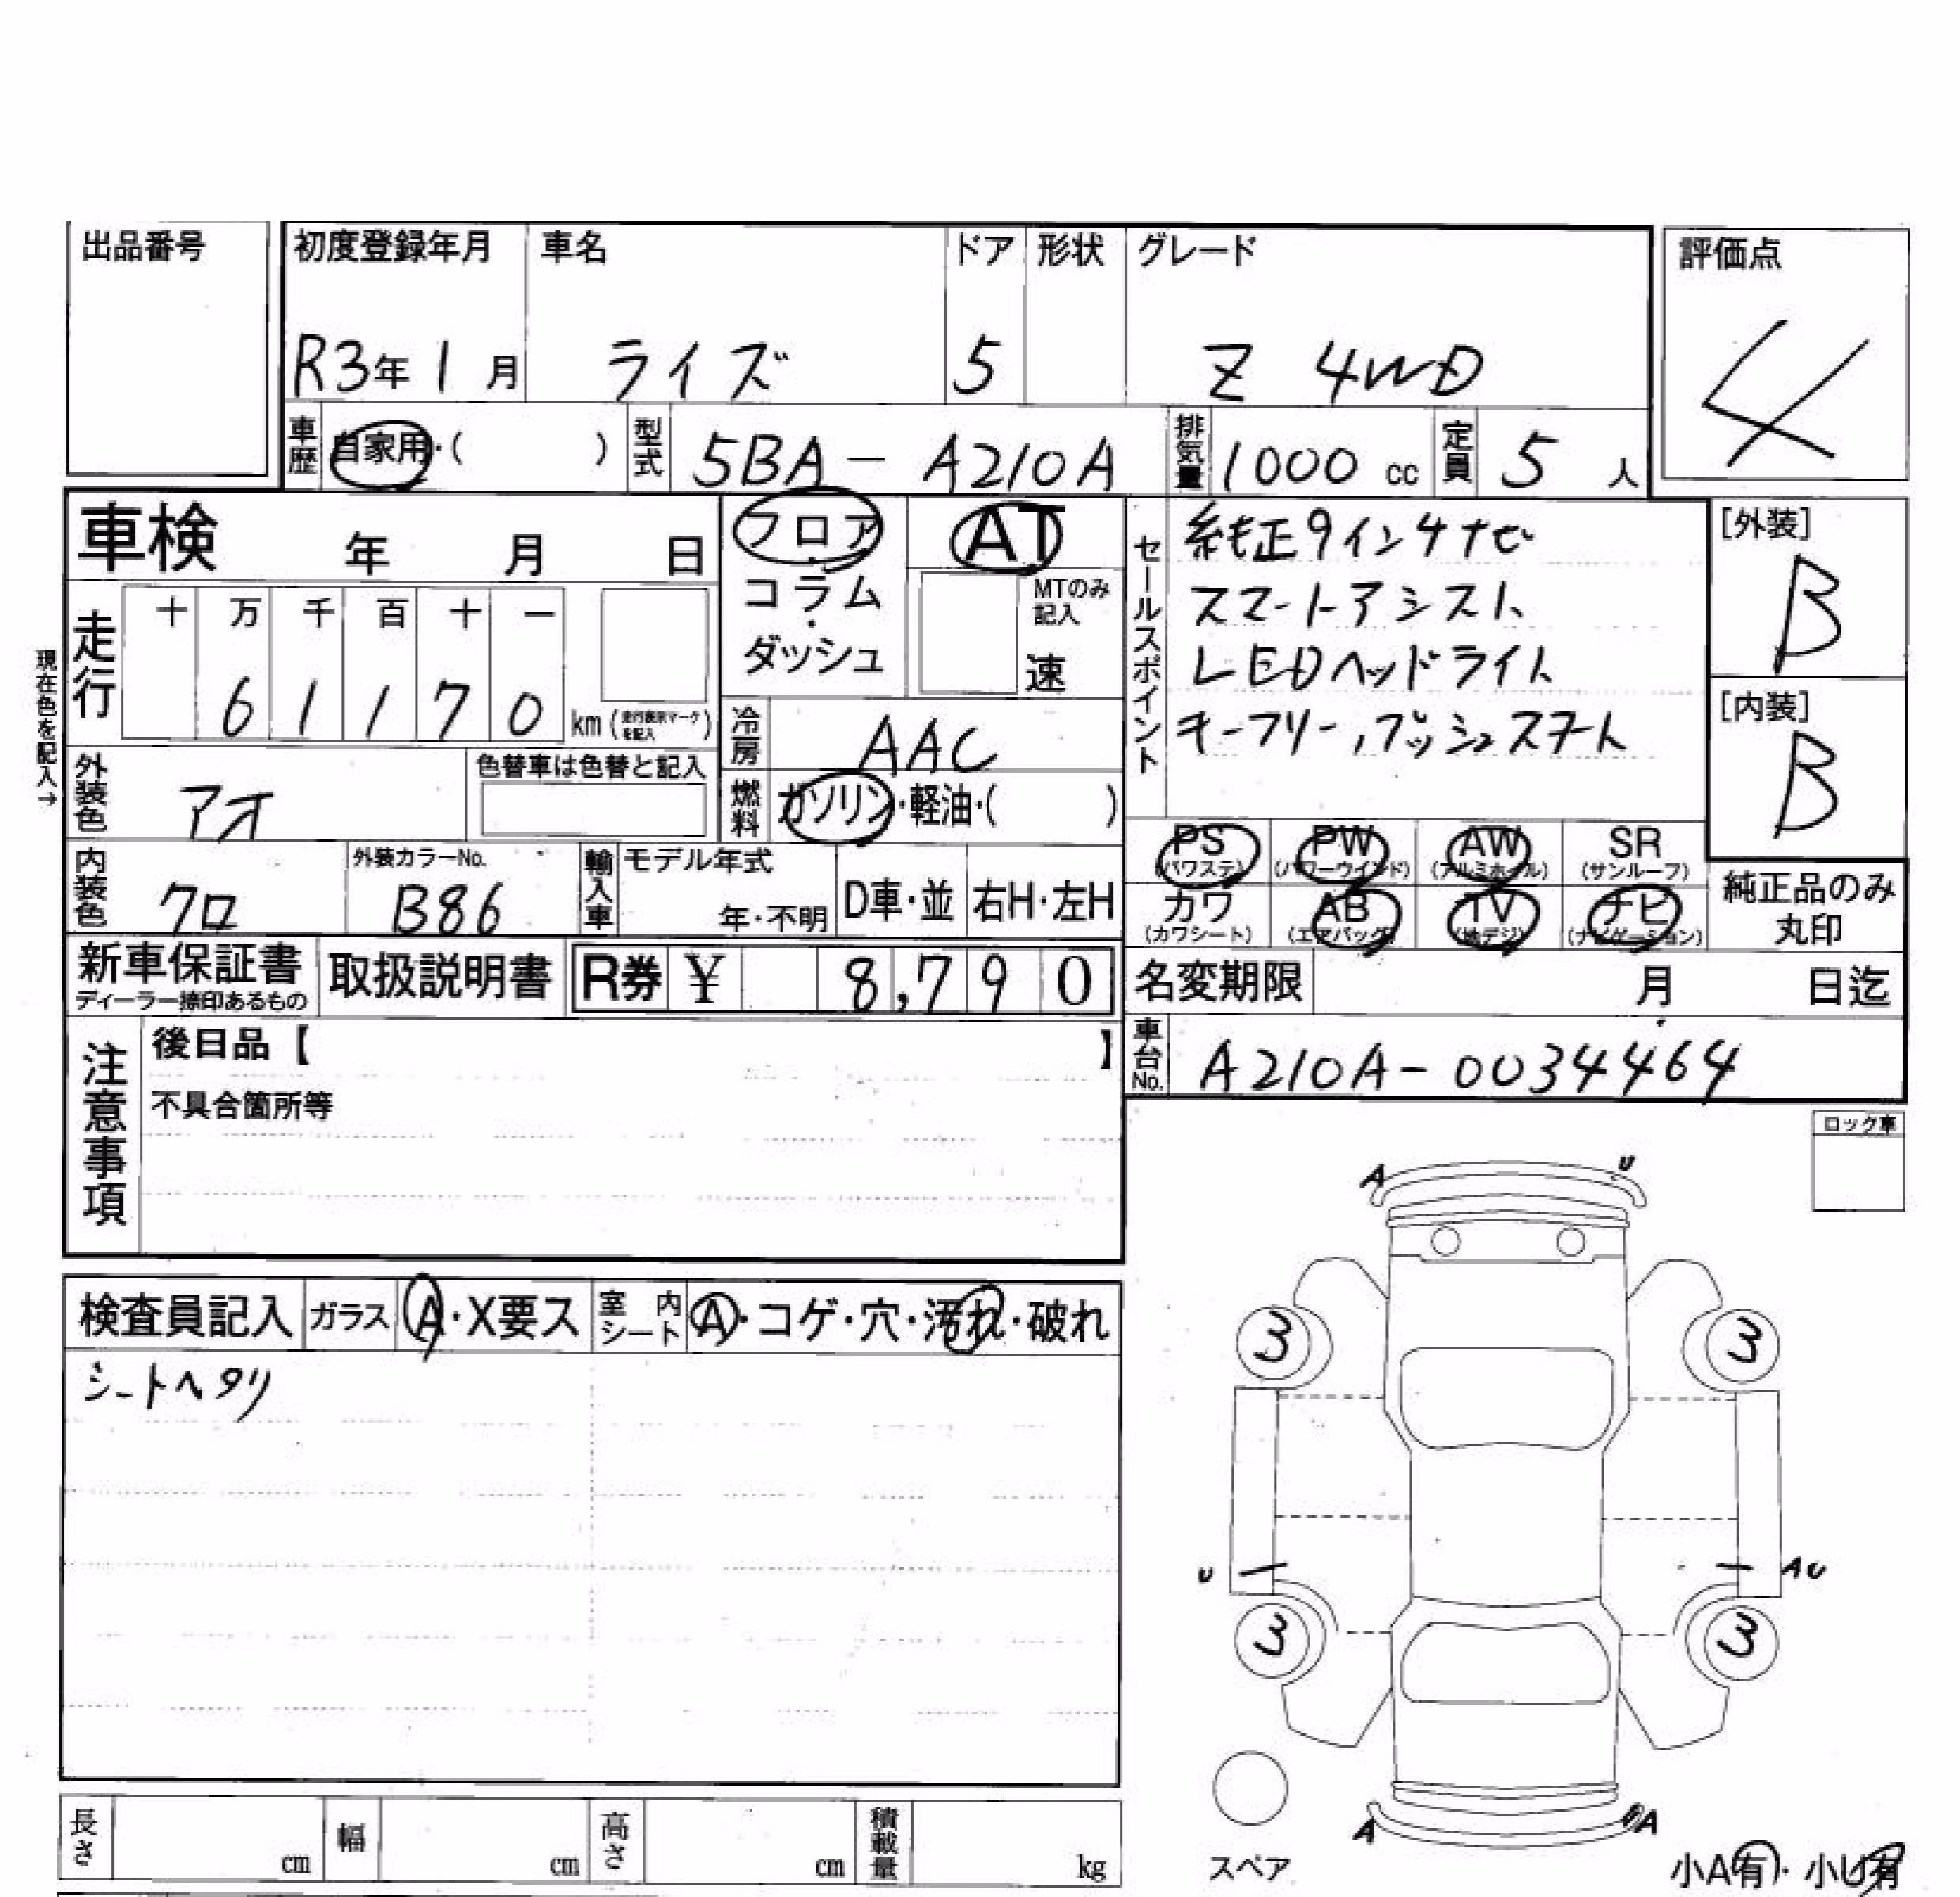 出品番号
初度登録年月 車名 ドア 形状 グレード 評価点
R3年1月 ライズ 5 Z 4WD 4
車歴 自家用・( ) 型式 5BA-A210A 排気量 1000 cc 定員 5 人
車検 年 月 日
フロア・コラム・ダッシュ
AT
MTのみ記入
速
現在色を記入→
走行 十 万 千 百 十 一
6 1 1 7 0 km (走行表示マークを記入)
冷房 AAC
燃料 ガソリン・軽油・( )
外装色 アオ 色替車は色替と記入
内装色 クロ 外装カラーNo. B86 輸入車 モデル年式 年・不明 D車・並 右H・左H
セールスポイント
純正9インチナビ
スマートアシスト
LEDヘッドライト
キーフリー,プッシュスタート
[外装] B
[内装] B
PS(パワステ) PW(パワーウインド) AW(アルミホイル) SR(サンルーフ)
カワ(カワシート) AB(エアバッグ) TV(地デジ) ナビ(ナビゲーション)
純正品のみ丸印
新車保証書 ディーラー捺印あるもの 取扱説明書 R券 ¥ 8,790
名変期限 月 日迄
車台No. A210A-0034464
注意事項
後日品【 】
不具合箇所等
ロック車
検査員記入 ガラス A・X要ス 室内シート A・コゲ・穴・汚れ・破れ
シートヘタリ
A U
3 3
U AU
3 3
A A
スペア
小A有・小U有
長さ cm 幅 cm 高さ cm 積載量 kg